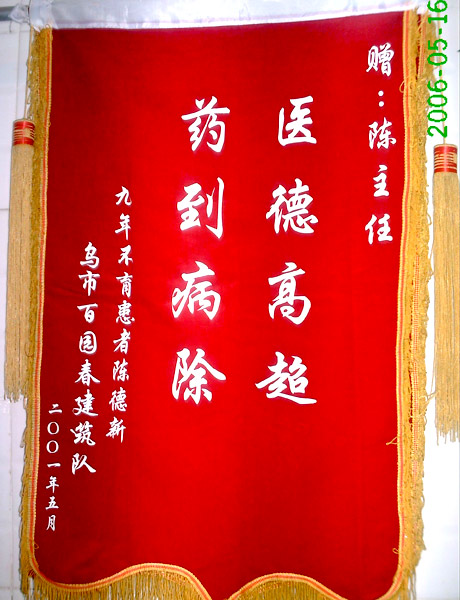 赠：陈主任
医德高超
药到病除
九年不育患者陈德新
乌市百园春建筑队
二〇〇一年五月
2006-05-16